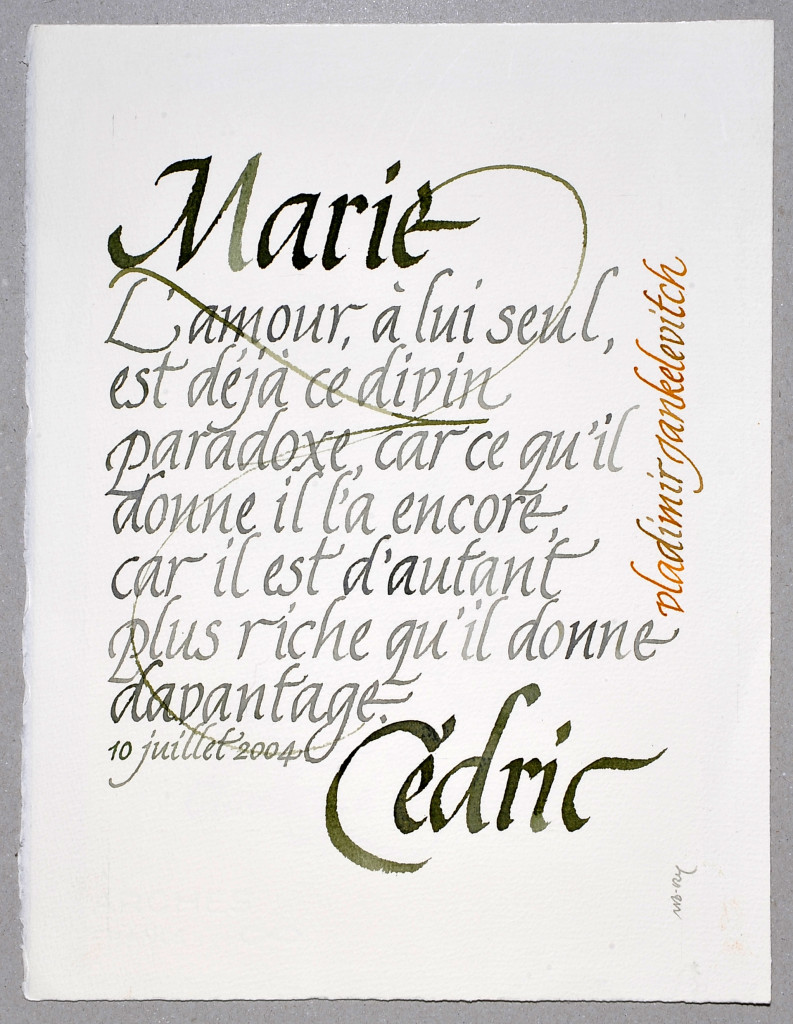 Marie
L'amour, à lui seul,
est déjà ce divin
paradoxe, car ce qu'il
donne il l'a encore,
car il est d'autant
plus riche qu'il donne
davantage.
10 juillet 2004
Cédric
vladimir jankelevitch